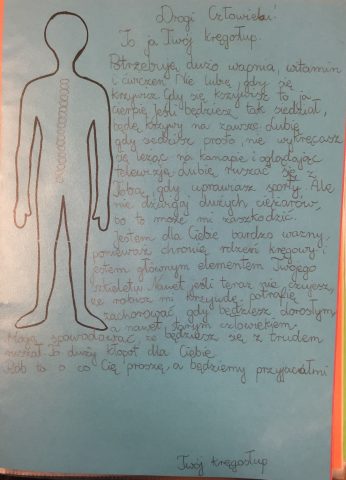 Drogi Człowieku!
To ja Twój kręgosłup.
Potrzebuję dużo wapnia, witamin
i ćwiczeń. Nie lubię, gdy się
krzywisz. Gdy się krzywisz to ja
cierpię. Jeśli będziesz tak siedział,
będę krzywy na zawsze. Lubię
gdy siedzisz prosto, nie wykręcasz
się leżąc na kanapie i oglądając
telewizję. Lubię ruszać się z
Tobą, gdy uprawiasz sporty. Ale
nie dźwigaj dużych ciężarów,
bo to może mi zaszkodzić.
Jestem dla Ciebie bardzo ważny,
ponieważ chronię rdzeń kręgowy i
jestem głównym elementem Twojego
szkieletu. Nawet jeśli teraz nie czujesz,
że robisz mi krzywdę, potrafię
zachorować, gdy będziesz dorosłym
a nawet starym człowiekiem.
Mogę spowodować, że będziesz się z trudem
ruszał. To duży kłopot dla Ciebie.
Rób to o co Cię proszę, a będziemy przyjaciółmi
Twój kręgosłup